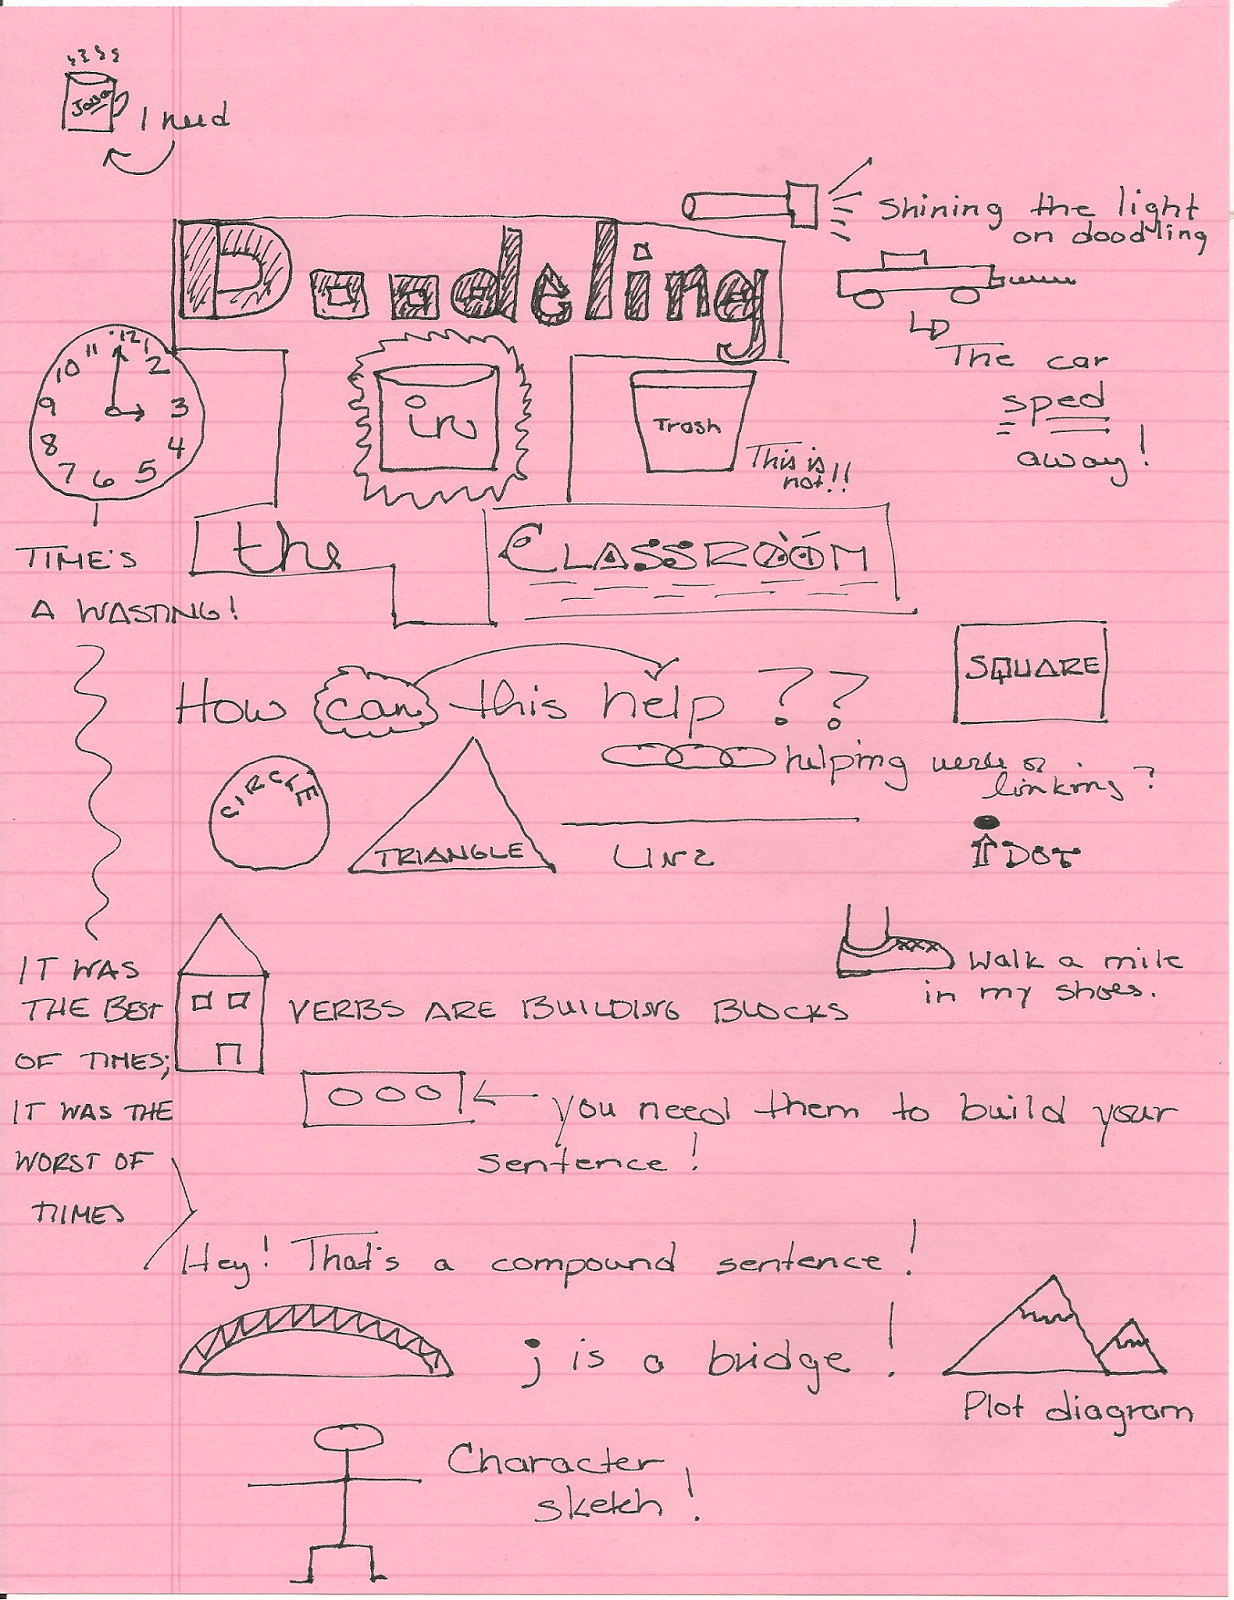 Java
I need
Shining the light
on doodling
Doodling
12
1
2
3
4
5
6
7
8
9
10
11
The car
sped
away!
in
Trash
This is
not!!
TIME'S
A WASTING!
the
CLASSROOM
SQUARE
How can this help ??
helping verb or
linking?
CIRCLE
TRIANGLE
LINE
DOT
Walk a mile
in my shoes.
IT WAS
THE BEST
OF TIMES;
IT WAS THE
WORST OF
TIMES
VERBS ARE BUILDING BLOCKS
you need them to build your
sentence!
Hey! That's a compound sentence!
; is a bridge!
Plot diagram
Character
sketch!